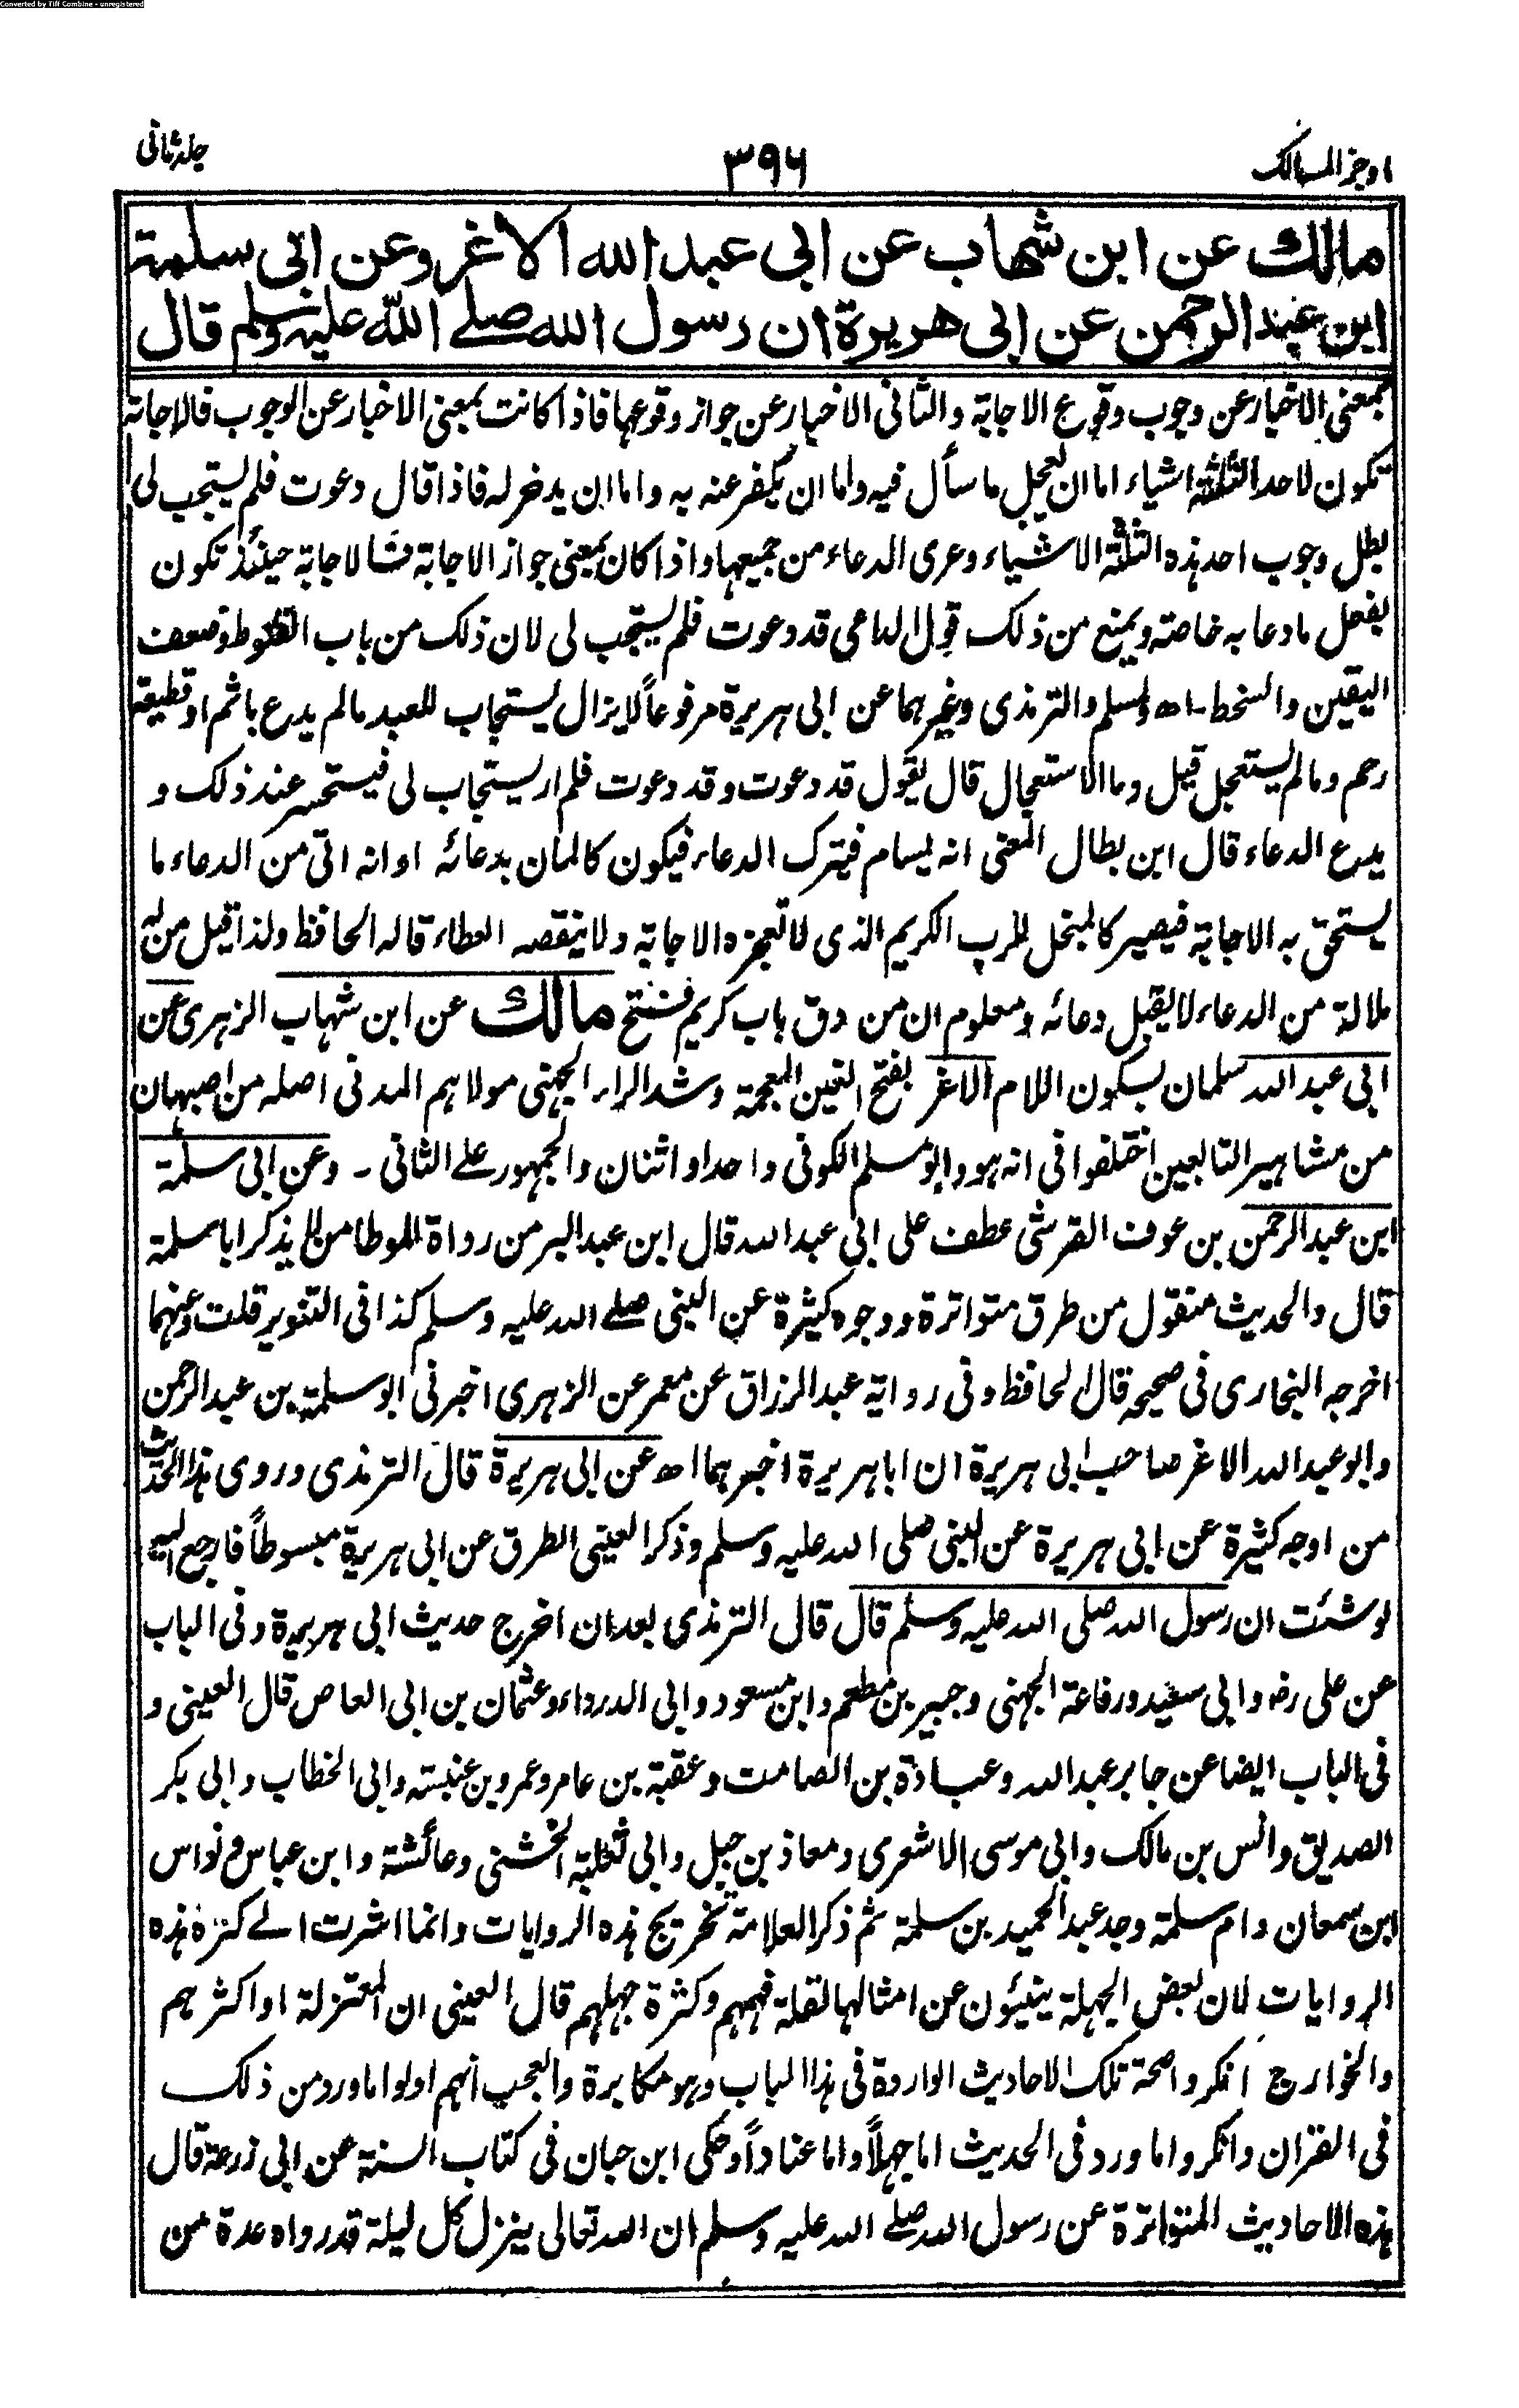 Converted by Tiff Combine - unregistered
اوجز المسالك
٣٩٦
جلد ثانی
مالك عن ابن شهاب عن ابي عبد الله الاغر وعن ابي سلمة
ابن عبد الرحمن عن ابي هريرة ان رسول الله صلے الله عليه وسلم قال
بمعنى الاخبار عن وجوب وقوع الاجابة والثانى الاخبار عن جواز وقوعها فاذا كانت بمعنى الاخبار عن الوجوب فالاجابة
تكون لاحد الثلثة اشياء اما ان يعجل ما سأل فيه واما ان يكفر عنه به واما ان يدخر له فاذا قال دعوت فلم يستجب لى
بطل وجوب احد هذه الثلثة الاشياء وعرى الدعاء من جميعها واذا كان بمعنى جواز الاجابة فالاجابة حينئذ تكون
بفعل ما دعا به خاصة ويمنع من ذلك قول الداعى قد دعوت فلم يستجب لى لان ذلك من باب القنوط وضعف
اليقين والسخط ـ اھ ولمسلم والترمذى وغيرهما عن ابى هريرة مرفوعاً لا يزال يستجاب للعبد ما لم يدع باثم او قطيعة
رحم وما لم يستعجل قيل وما الاستعجال قال يقول قد دعوت وقد دعوت فلم ار يستجاب لى فيستحسر عند ذلك و
يدع الدعاء قال ابن بطال المعنى انه يسام فيترك الدعاء فيكون كالمان بدعائه او انه اتى من الدعاء ما
يستحق به الاجابة فيصير كالمبخل للرب الكريم الذى لا تعجزه الاجابة ولا ينقصه العطاء قاله الحافظ ولذا قيل من له
ملالة من الدعاء لا يقبل دعائه ومعلوم ان من دق باب كريم فتح مالك عن ابن شهاب الزهرى عن
ابى عبد الله سلمان بسكون اللام الاغر بفتح الغين المعجمة وشد الراء الجهنى مولاهم المدنى اصله من اصبهان
من مشاهير التابعين اختلفوا فى انه هو وابو مسلم الكوفى واحد او اثنان والجمهور على الثانى ـ وعن ابى سلمة
ابن عبد الرحمن بن عوف القرشى عطف على ابى عبد الله قال ابن عبد البر من رواة الموطا من لا يذكر ابا سلمة
قال والحديث منقول من طرق متواترة ووجوه كثيرة عن النبى صلے الله عليه وسلم كذا فى التنوير قلت وعنهما
اخرجه البخارى فى صحيحه قال الحافظ وفى رواية عبد الرزاق عن معمر عن الزهرى اخبرنى ابو سلمة بن عبد الرحمن
وابو عبد الله الاغر صاحب ابى هريرة ان ابا هريرة اخبرهما اھ عن ابى هريرة قال الترمذى وروى هذا الحديث
من اوجه كثيرة عن ابى هريرة عن النبى صلى الله عليه وسلم وذكر العينى الطرق عن ابى هريرة مبسوطاً فارجع اليه
لو شئت ان رسول الله صلى الله عليه وسلم قال قال الترمذى بعد ان اخرج حديث ابى هريرة وفى الباب
عن على رض وابى سعيد ورفاعة الجهنى وجبير بن مطعم وابن مسعود وابى الدرداء وعثمان بن ابى العاص قال العينى و
فى الباب ايضا عن جابر عبد الله وعبادة بن الصامت وعقبة بن عامر وعمرو بن عنبسة وابى الخطاب وابى بكر
الصديق وانس بن مالك وابى موسى الاشعرى ومعاذ بن جبل وابى ثعلبة الخشنى وعائشة وابن عباس و نواس
ابن سمعان وام سلمة وجد عبد الحميد بن سلمة ثم ذكر العلامة تخريج هذه الروايات وانما اشرت الے كثرة هذه
الروايات لان بعض الجهلة ينبئون عن امثالها لقلة فهمهم وكثرة جهلهم قال العينى ان المعتزلة او اكثرهم
والخوارج انكروا صحة تلك الاحاديث الواردة فى هذا الباب وهو مكابرة والعجب انهم اولوا ما ورد من ذلك
فى القران وانكروا ما ورد فى الحديث اما جهلاً واما عناداً وحكى ابن حبان فى كتاب السنة عن ابى زرعة قال
هذه الاحاديث المتواترة عن رسول الله صلے الله عليه وسلم ان الله تعالى ينزل كل ليلة قد رواه عدة من